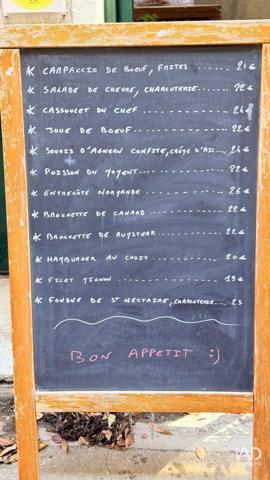 * CARPACCIO DE BOEUF, FRITES ....... 21€
* SALADE DE CHEVRE, CHARCUTERIE.... 22€
* CASSOULET DU CHEF ............ 24€
* JOUE DE BOEUF ............ 22€
* SOURIS D'AGNEAU CONFITE, CRÈME D'AIL.... 24€
* POISSON DU MOMENT ........... 22€
* ENTRECÔTE NORMANDE ........... 26€
* BROCHETTE DE CANARD ........... 22€
* BROCHETTE DE RUMSTEAK ........... 22€
* HAMBURGER AU CHOIX ........... 20€
* FILET MIGNON ........... 19€
* FONDUE DE ST NECTAIRE, CHARCUTERIE.... 23
BON APPETIT :)
IAD